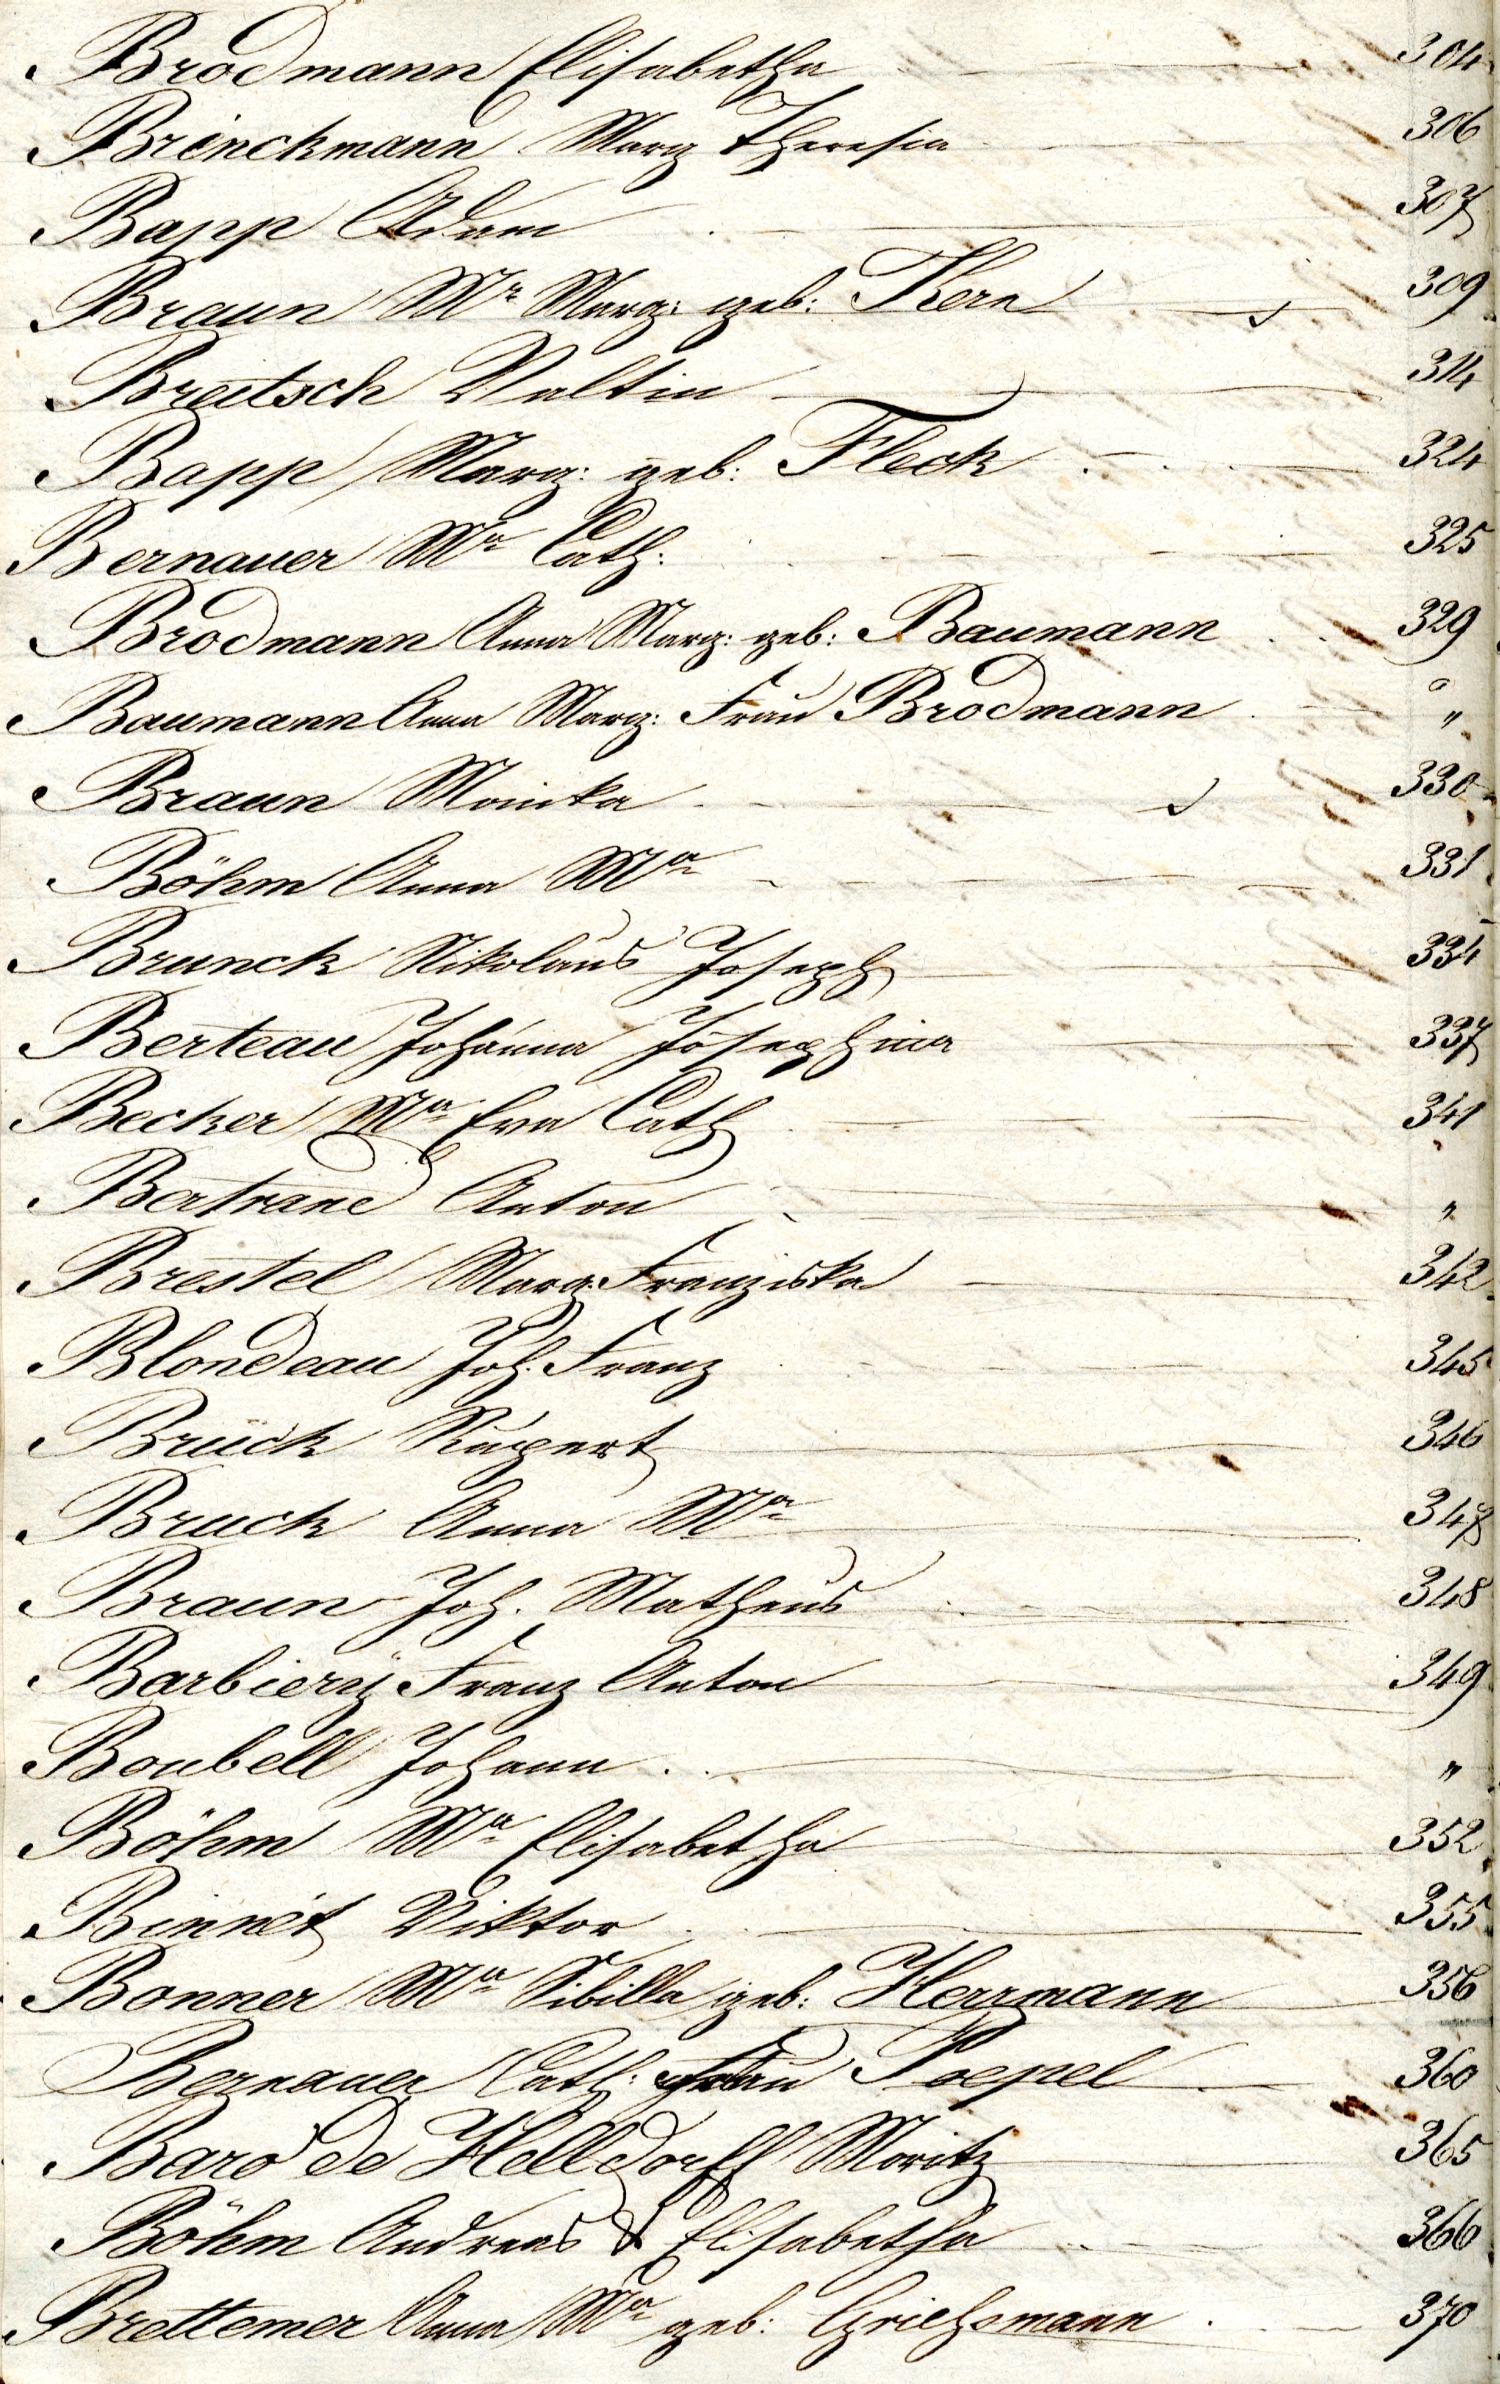 Brodmann Elisabetha 304
Brinckmann Marg Theresia 306
Bapp Adam 307
Braun Mr Marg: geb: Kern 309
Breitsch Valtin 314
Bapp Marg: geb: Fleck 324
Bernauer Ma Cath: 325
Brodmann Anna Marg: geb: Baumann 329
Baumann Anna Marg: Frau Brodmann "
Braun Monika 330
Böhm Anna Ma 331
Brunck Nikolaus Joseph 334
Berteau Johanna Josephina 337
Becker Ma Eva Cath 341
Bertrand Anton "
Brestel Marg: Franziska 342
Blondeau Joh. Franz 345
Brück Rupert 346
Bruck Anna Ma 347
Braun Joh. Matheus 348
Barbiery Franz Anton 349
Boubell Johann "
Böhm Ma Elisabetha 352
Binnet Viktor 355
Bonner Ma Sibilla geb: Herrmann 356
Bernauer Cath: Frau Poepel 360
Baro de Helldorff Moritz 365
Böhm Andreas & Elisabetha 366
Brettemer Anna Ma geb: Griehsmann 370